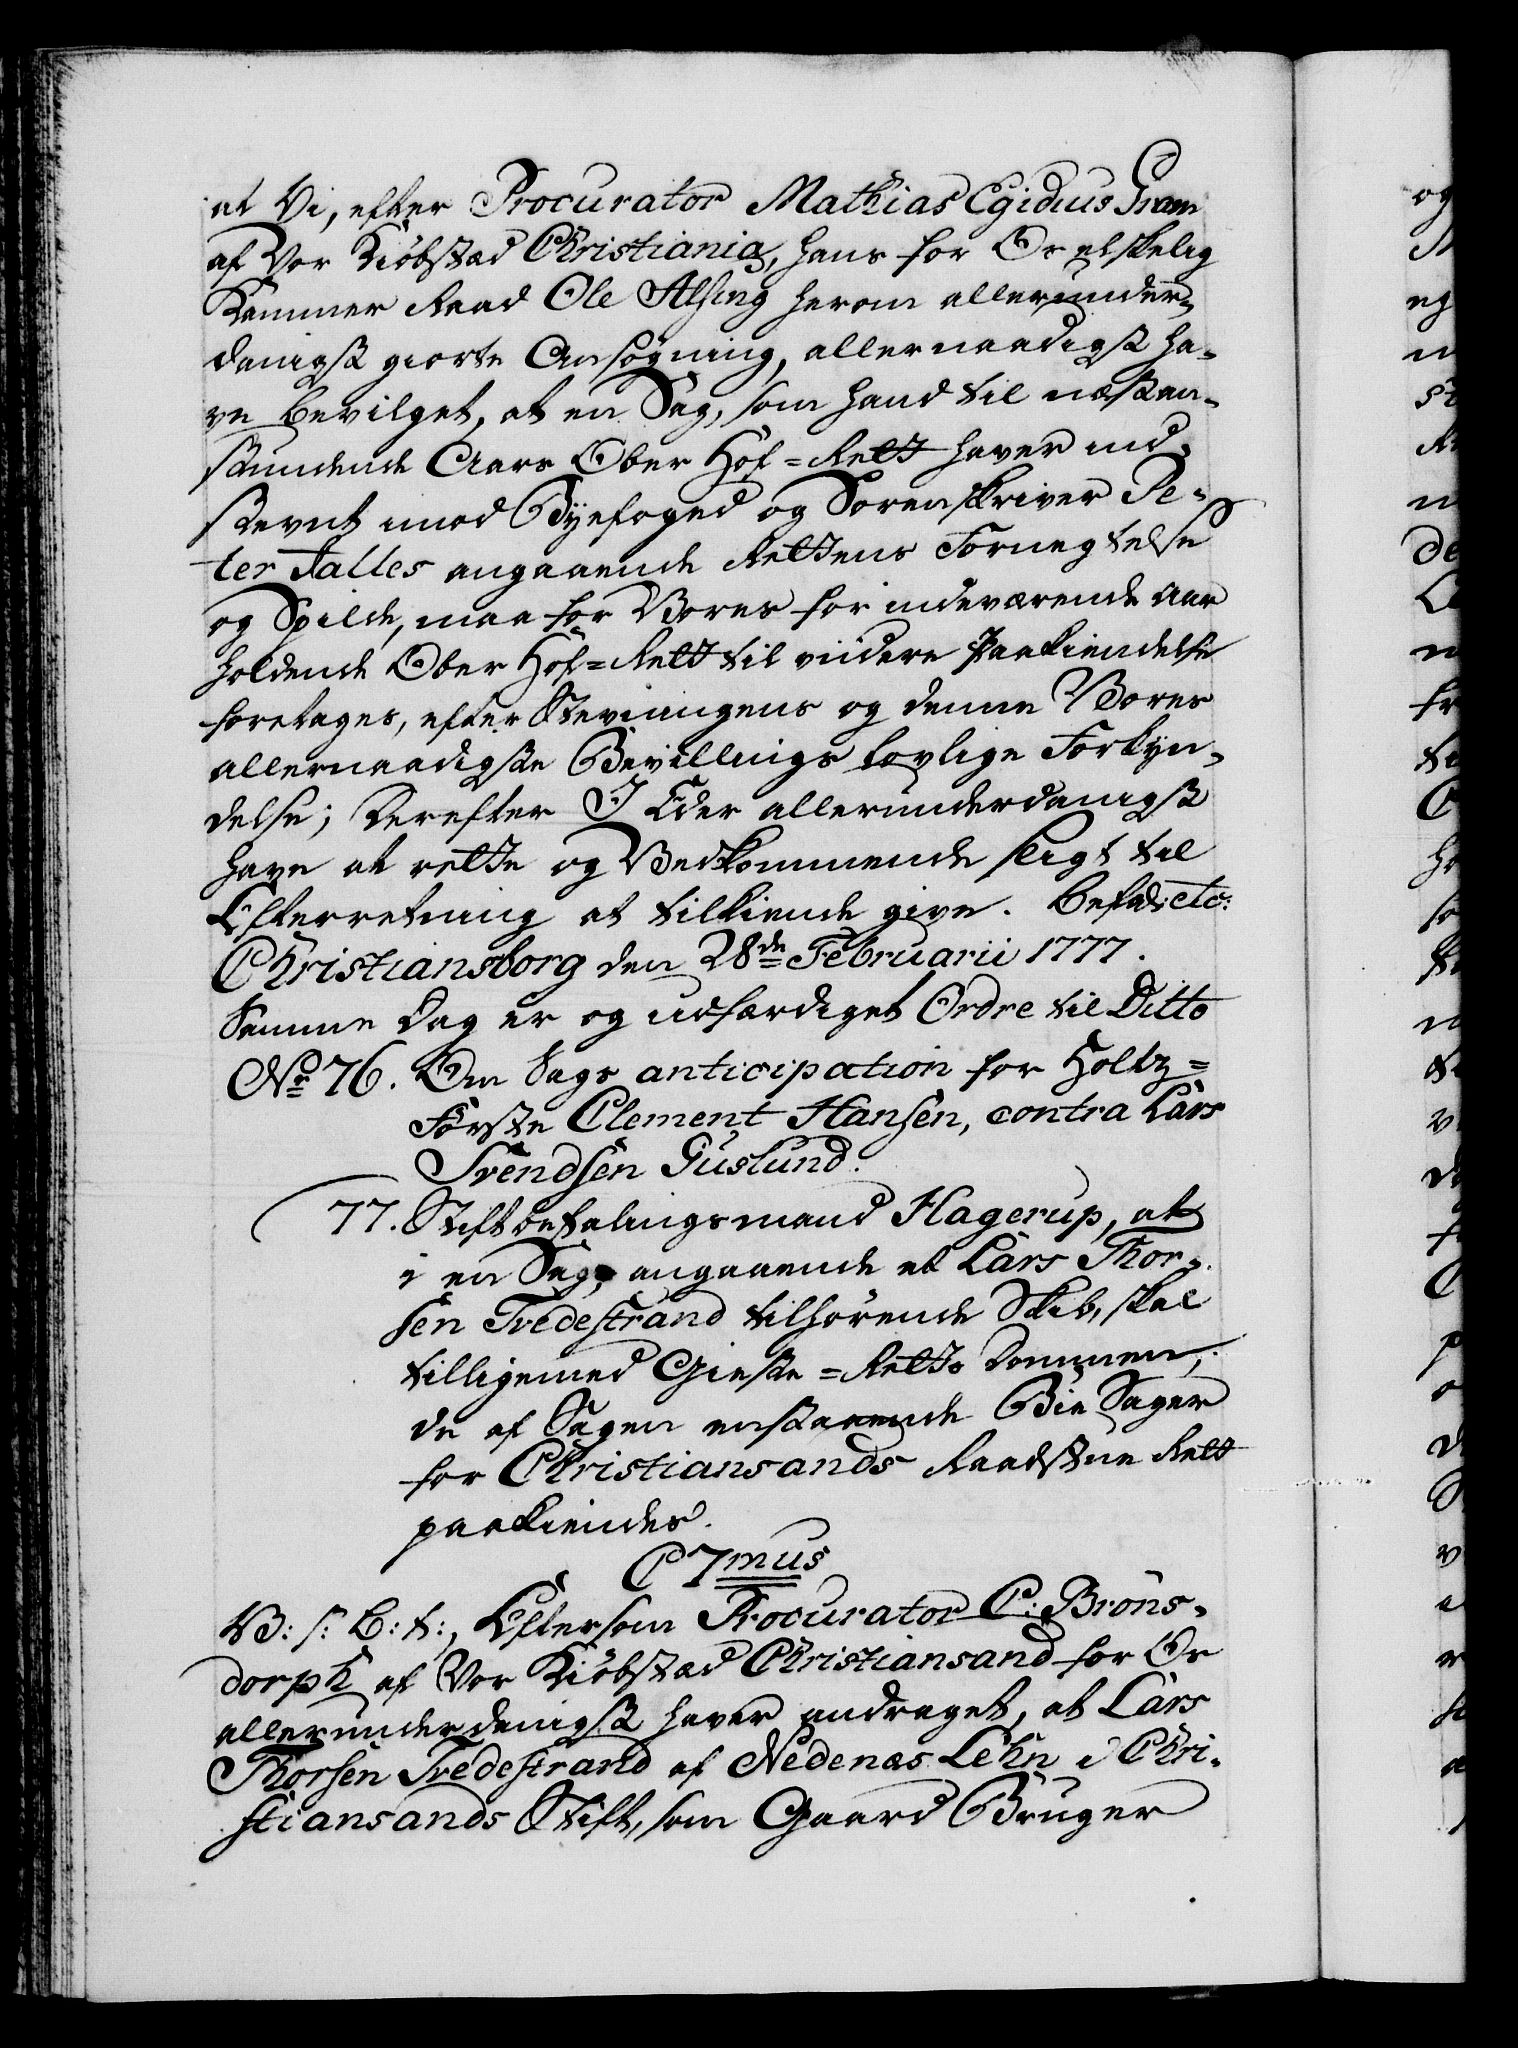 at Vi, efter Procurator Mathias Egidius Gram
af Vor Kiøbstæd Christiania, hans for Os elskelig
Kammer Raad Ole Alsing herom allerunder-
danigst giorte Ansøgning, allernaadigst ha-
ve bevilget, at en Sag, som hand til næstan-
stundende Aars Ober Hof-Rett haver ind-
stevnt imod Byefoged og Sorenskriver Pe-
ter Falles angaaende Rettens Fornegtelse
og Spilde, maa for Vores for indeværende Aar
holdende Ober Hof-Rett til viidere Paakiendelse
foretages, efter Stevningens og denne Vores
allernaadigste Bevillings lovlige Forkyn-
delse; Derefter I Eder allerunderdanigst
have at rette og Vedkommende sligt til
Efterretning at tilkiende give. Befal: etc:
Christiansborg den 28de Februarii 1777.
Samme Dag er og udfærdiget Ordre til Ditto
No 76. Om Sags anticipation for Holtz-
Førster Clement Hansen, contra Lars
Svendsen Guslund.
77. Stiftbefalingsmand Hagerup, at
i en Sag, angaaende et Lars Thor-
sen Tvedestrand tilhørende Skib, skal
tilligemed Gieste-Retts Dommen,
de af Sagen enstaaende Bie Sager
for Christiansands Raadstue Rett
paakiendes.
C 7mus
V: s: G: t:, Eftersom Procurator C: Brøns-
dorph af Vor Kiøbstæd Christiansand for Os
allerunderdanigst haver andraget, at Lars
Thorsen Tvedestrand af Nedenæs Lehn i Chri-
stiansands Stift, som Gaard Bruger